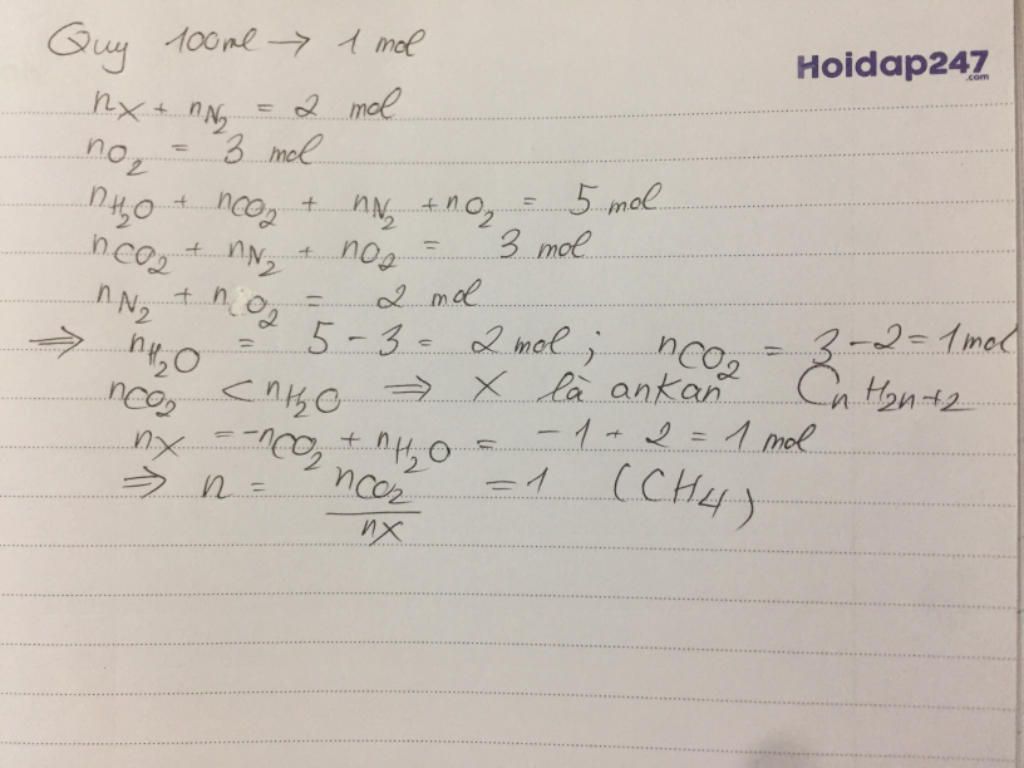 Quy 100ml → 1 mol
Hoidap247
.com
nX + nN₂ = 2 mol
nO₂ = 3 mol
nH₂O + nCO₂ + nN₂ + nO₂ = 5 mol
nCO₂ + nN₂ + nO₂ = 3 mol
nN₂ + nO₂ = 2 mol
⇒ nH₂O = 5 - 3 = 2 mol ; nCO₂ = 3 - 2 = 1 mol
nCO₂ < nH₂O ⇒ X là ankan CnH2n+2
nX = -nCO₂ + nH₂O = -1 + 2 = 1 mol
⇒ n = nCO₂ / nX = 1 (CH₄)